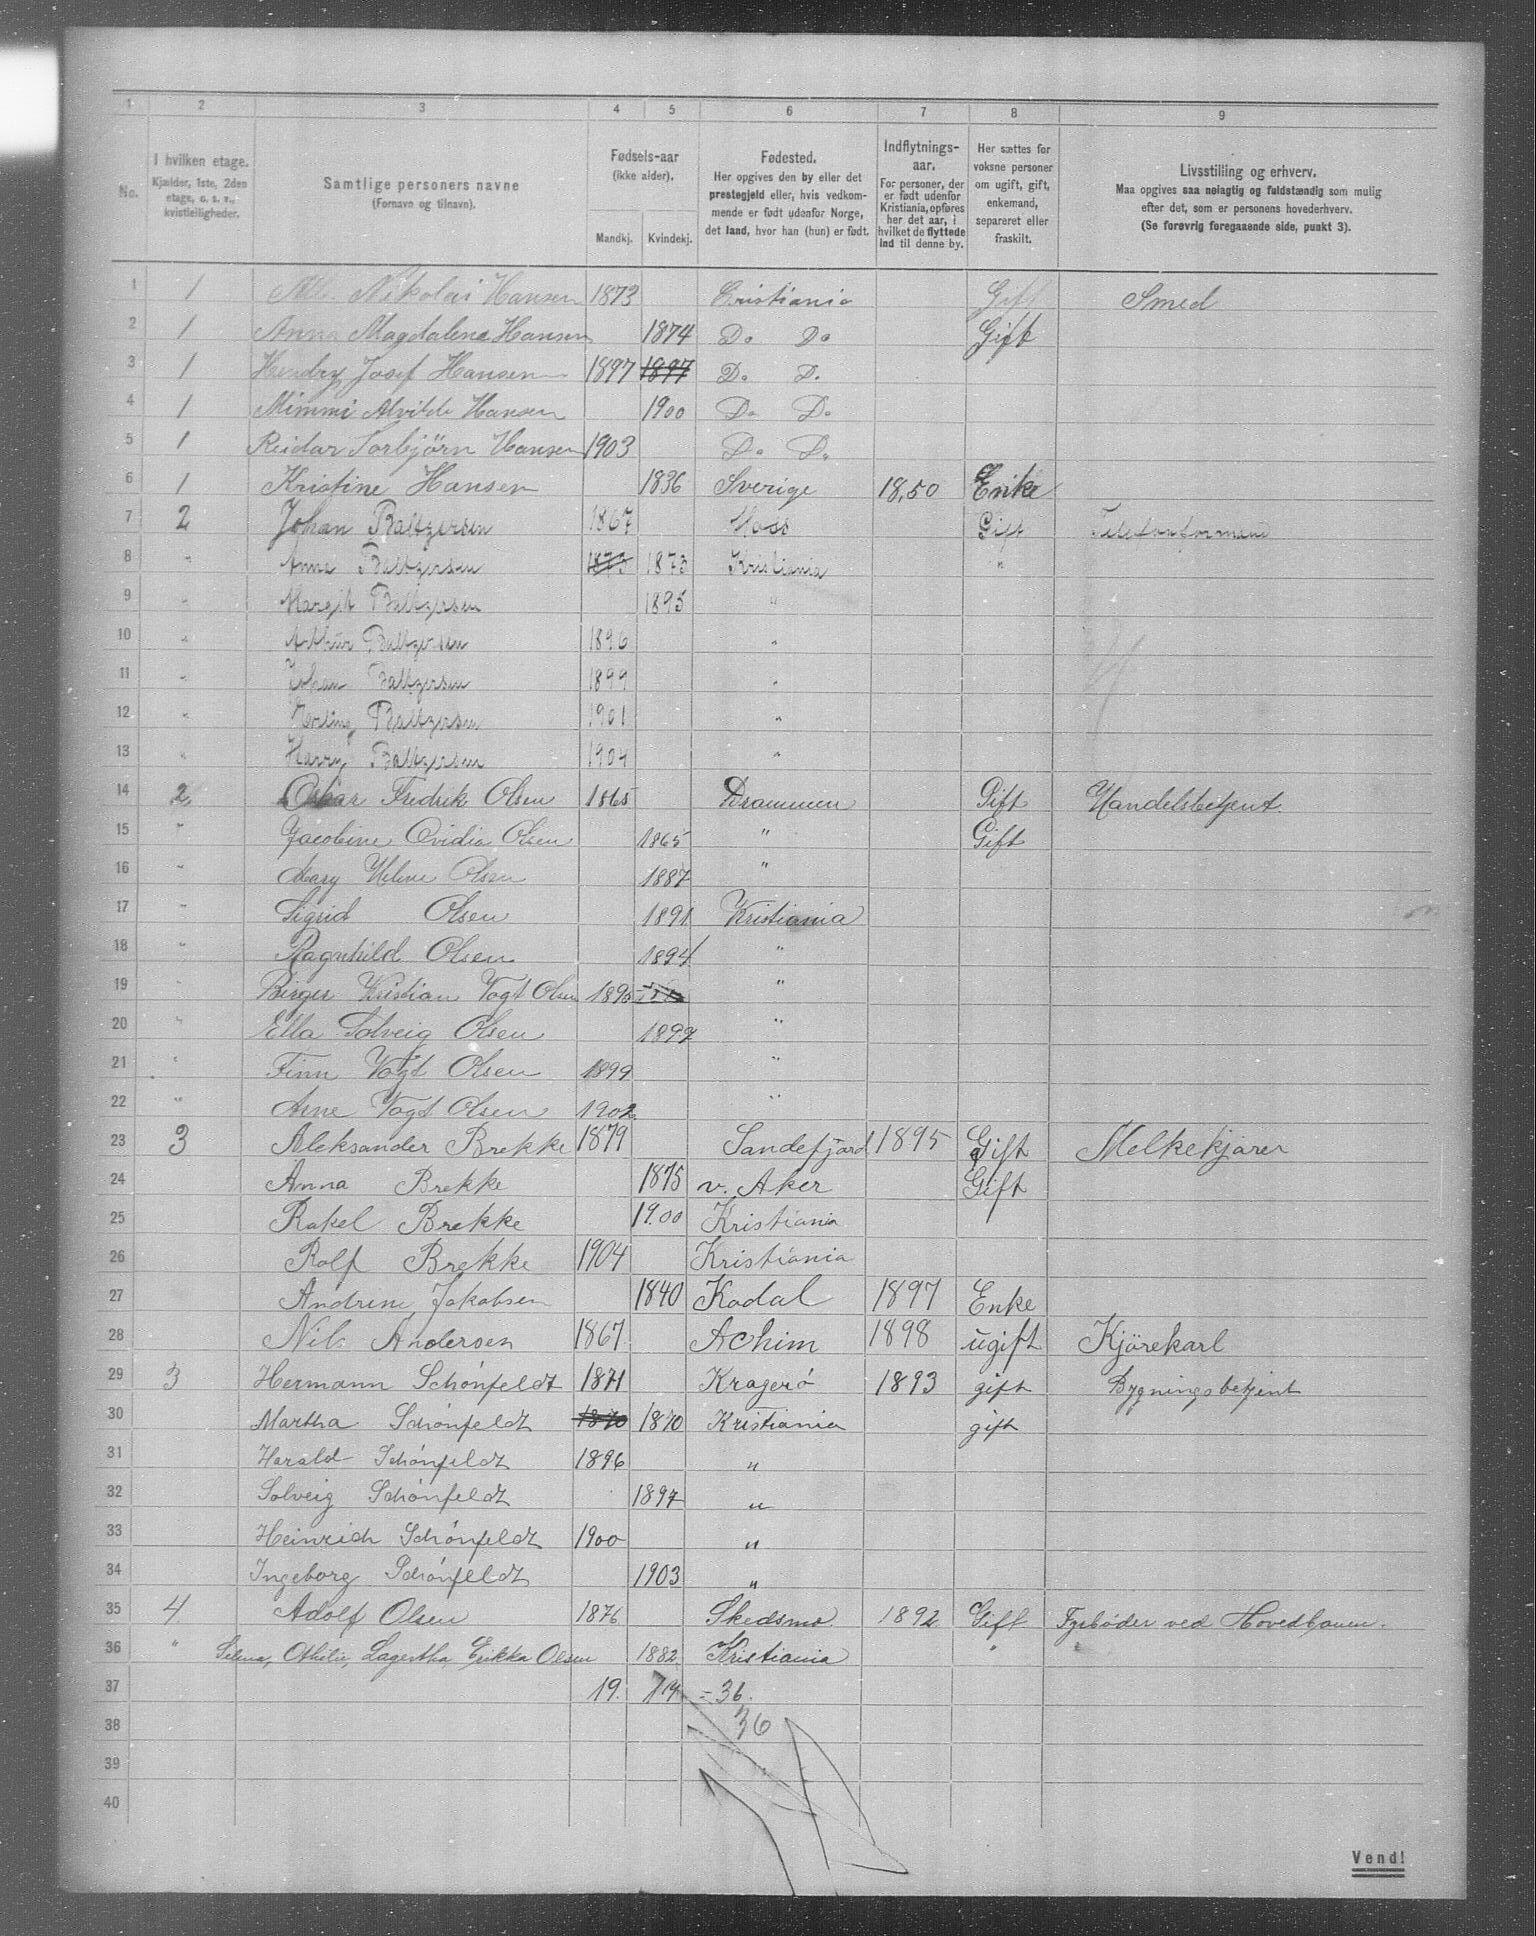 1 2 3 4 5 6 7 8 9
No.
I hvilken etage.
Kjælder, 1ste, 2den
etage, o. s. v.,
kvistleiligheder.
Samtlige personers navne
(Fornavn og tilnavn).
Fødsels-aar
(ikke alder).
Mandkj. Kvindekj.
Fødested.
Her opgives den by eller det
prestegjeld eller, hvis vedkom-
mende er født udenfor Norge,
det land, hvor han (hun) er født.
Indflytnings-
aar.
For personer, der
er født udenfor
Kristiania, opføres
her det aar, i
hvilket de flyttede
ind til denne by.
Her sættes for
voksne personer
om ugift, gift,
enkemand,
separeret eller
fraskilt.
Livsstilling og erhverv.
Maa opgives saa nøiagtig og fuldstændig som mulig
efter det, som er personens hovederhverv.
(Se forøvrig foregaaende side, punkt 3).
1 1 Nikolai Hansen 1873 Cristiania Gift Smed
2 1 Anna Magdalena Hansen 1874 Do Do Gift
3 1 Hendry Josef Hansen 1897 1897 Do D.
4 1 Mimmi Alvilde Hansen 1900 Do Do
5 1 Reidar Torbjörn Hansen 1903 Do Do
6 1 Kristine Hansen 1836 Sverige 18,50 Enke
7 2 Johan Baltzersen 1867 Moss Gift Telefonformand
8 " Anna Baltzersen 1873 1873 Kristiania "
9 " Margit Baltzersen 1895 "
10 " Arthur Baltzersen 1896 "
11 " Johan Baltzersen 1899 "
12 " Baltzersen 1901 "
13 " Harry Baltzersen 1904 "
14 2 Oskar Fredrik Olsen 1865 Drammen Gift Handelsbetjent.
15 " Jacobine Ovidia Olsen 1865 " Gift
16 " Mary Helene Olsen 1887 "
17 " Sigrid Olsen 1891 Kristiania
18 " Ragnhild Olsen 1894 "
19 " Birger Kristian Vogt Olsen 1895 "
20 " Ella Solveig Olsen 1897 "
21 " Finn Vogt Olsen 1899 "
22 " Arne Vogt Olsen 1902 "
23 3 Aleksander Brekke 1879 Sandefjord 1895 Gift Melkekjører
24 Anna Brekke 1875 v. Aker Gift
25 Rakel Brekke 19.00 Kristiania
26 Rolf Brekke 1904 Kristiania
27 Andrine Jakobsen 1840 Kodal 1897 Enke
28 Nils Andersen 1867 Achim 1898 ugift Kjörekarl
29 3 Hermann Schönfeldt 1871 Kragerö 1893 gift Bygningsbetjent
30 Martha Schönfeldt 1870 1870 Kristiania gift
31 Harald Schönfeldt 1896 "
32 Solveig Schönfeldt 1897 "
33 Heinrich Schönfeldt 1900 "
34 Ingeborg Schönfeldt 1903 "
35 4 Adolf Olsen 1876 Skedsmo. 1892 Gift Fyrbøder ved Hovedbanen.
36 " Selma, Othilie, Lagertha, Erikka Olsen 1882. Kristiania " "
37 19. 17. = 36.
38 36
39
40
Vend!